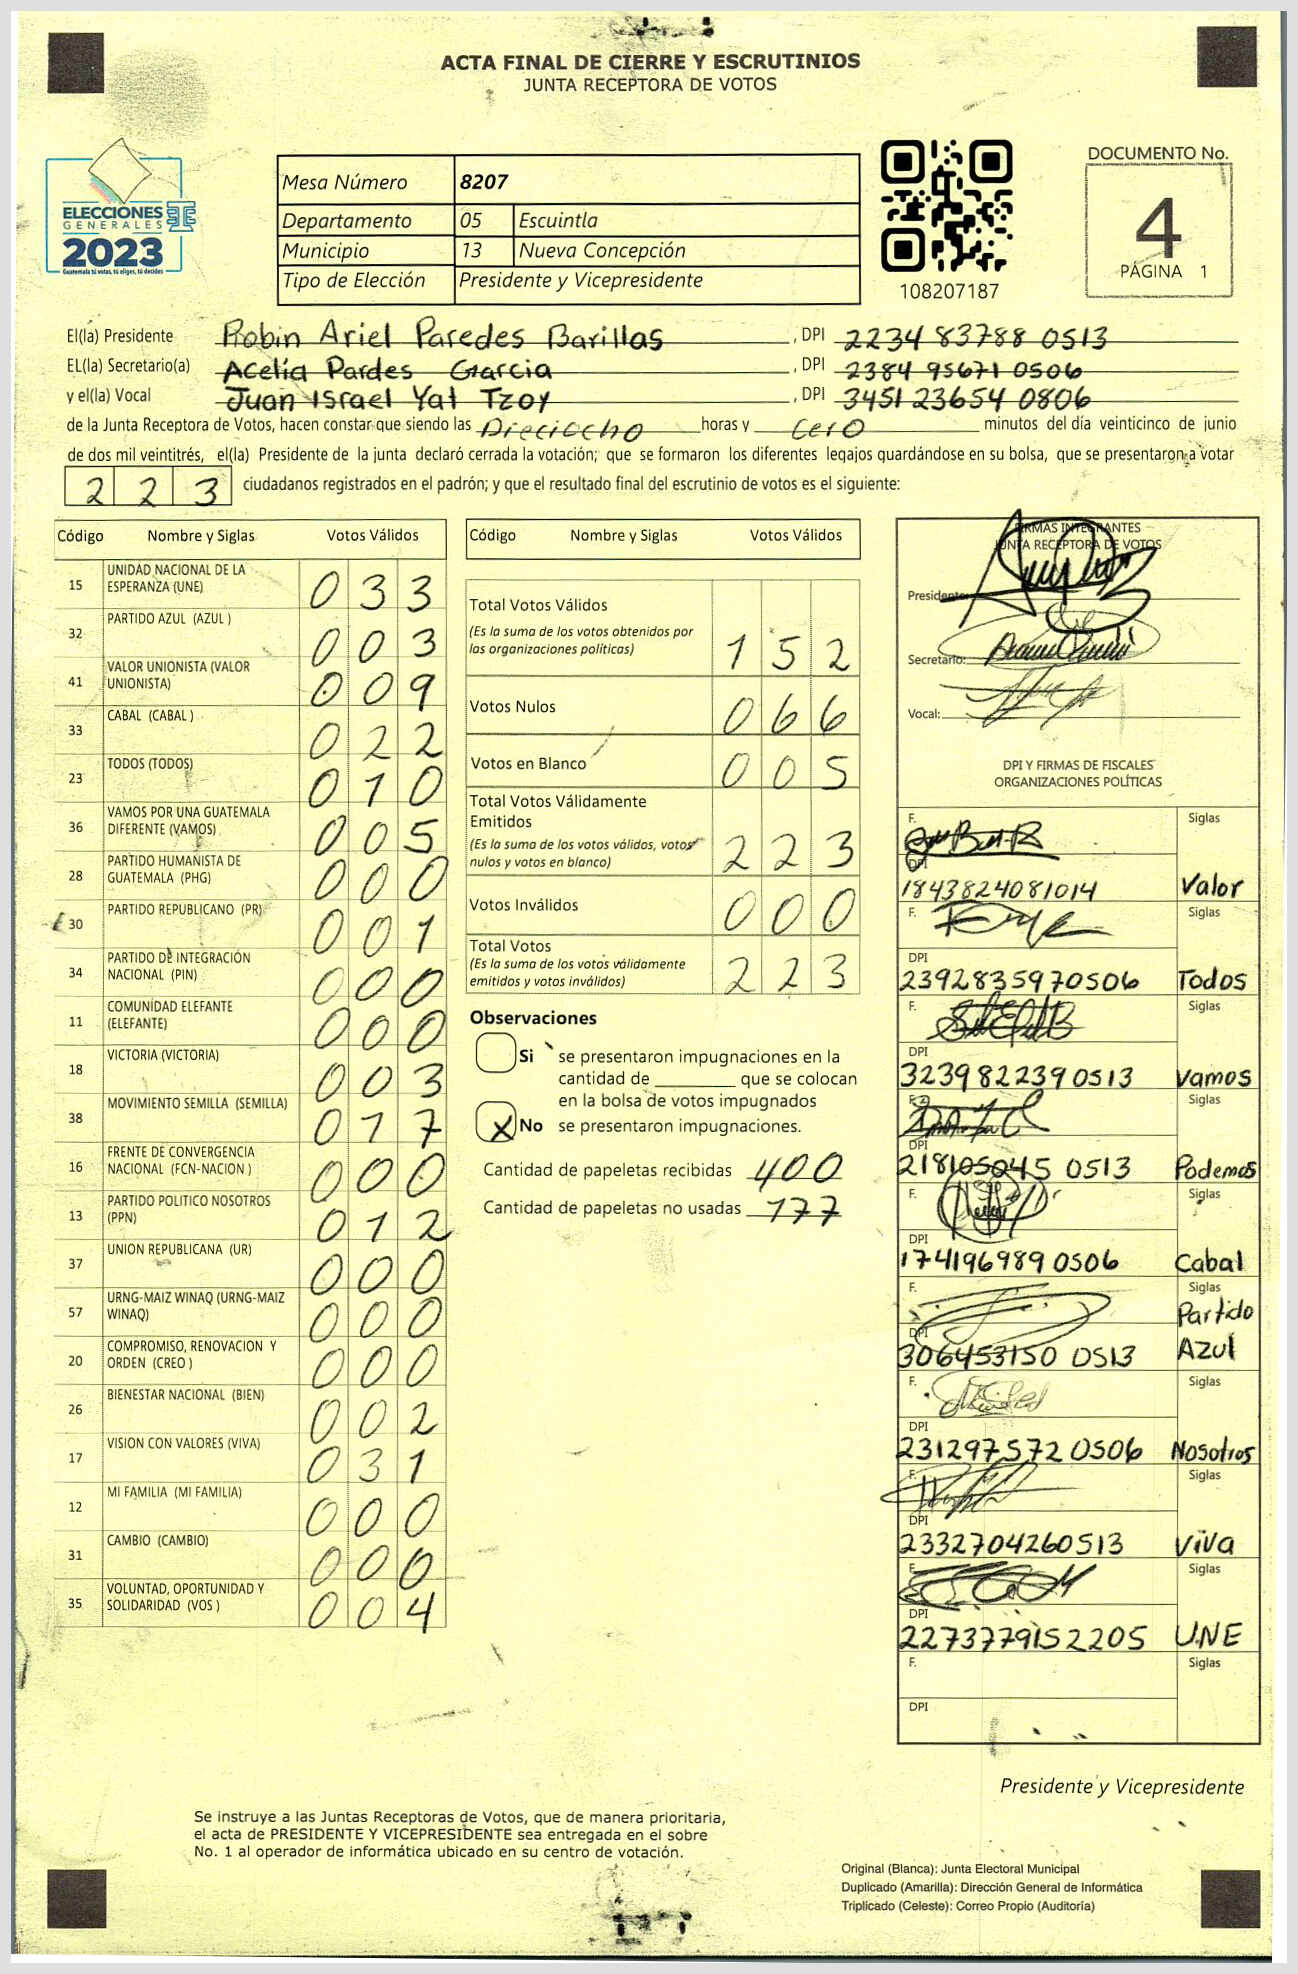 ACTA FINAL DE CIERRE Y ESCRUTINIOS
JUNTA RECEPTORA DE VOTOS
ELECCIONES
GENERALES
2023
Guatemala tú votas, tú eliges, tú decides
Mesa Número 8207
Departamento 05 Escuintla
Municipio 13 Nueva Concepción
Tipo de Elección Presidente y Vicepresidente
108207187
DOCUMENTO No.
4
PÁGINA 1
El(la) Presidente Robin Ariel Paredes Barillas, DPI 2234 83788 0513
EL(la) Secretario(a) Acelia Pardes Garcia, DPI 2384 95671 0506
y el(la) Vocal Juan Israel Yat Tzoy, DPI 3451 23654 0806
de la Junta Receptora de Votos, hacen constar que siendo las Dieciocho horas y cero minutos del día veinticinco de junio
de dos mil veintitrés, el(la) Presidente de la junta declaró cerrada la votación; que se formaron los diferentes legajos guardándose en su bolsa, que se presentaron a votar
2 2 3 ciudadanos registrados en el padrón; y que el resultado final del escrutinio de votos es el siguiente:
Código Nombre y Siglas Votos Válidos
15 UNIDAD NACIONAL DE LA ESPERANZA (UNE) 0 3 3
32 PARTIDO AZUL (AZUL ) 0 0 3
41 VALOR UNIONISTA (VALOR UNIONISTA) 0 0 9
33 CABAL (CABAL ) 0 2 2
23 TODOS (TODOS) 0 1 0
36 VAMOS POR UNA GUATEMALA DIFERENTE (VAMOS) 0 0 5
28 PARTIDO HUMANISTA DE GUATEMALA (PHG) 0 0 0
30 PARTIDO REPUBLICANO (PR) 0 0 1
34 PARTIDO DE INTEGRACIÓN NACIONAL (PIN) 0 0 0
11 COMUNIDAD ELEFANTE (ELEFANTE) 0 0 0
18 VICTORIA (VICTORIA) 0 0 3
38 MOVIMIENTO SEMILLA (SEMILLA) 0 1 7
16 FRENTE DE CONVERGENCIA NACIONAL (FCN-NACION ) 0 0 0
13 PARTIDO POLITICO NOSOTROS (PPN) 0 1 2
37 UNION REPUBLICANA (UR) 0 0 0
57 URNG-MAIZ WINAQ (URNG-MAIZ WINAQ) 0 0 0
20 COMPROMISO, RENOVACION Y ORDEN (CREO ) 0 0 0
26 BIENESTAR NACIONAL (BIEN) 0 0 2
17 VISION CON VALORES (VIVA) 0 3 1
12 MI FAMILIA (MI FAMILIA) 0 0 0
31 CAMBIO (CAMBIO) 0 0 0
35 VOLUNTAD, OPORTUNIDAD Y SOLIDARIDAD (VOS ) 0 0 4
Código Nombre y Siglas Votos Válidos
Total Votos Válidos
(Es la suma de los votos obtenidos por
las organizaciones políticas) 1 5 2
Votos Nulos 0 6 6
Votos en Blanco 0 0 5
Total Votos Válidamente
Emitidos
(Es la suma de los votos válidos, votos
nulos y votos en blanco) 2 2 3
Votos Inválidos 0 0 0
Total Votos
(Es la suma de los votos válidamente
emitidos y votos inválidos) 2 2 3
Observaciones
Si se presentaron impugnaciones en la
cantidad de ________ que se colocan
en la bolsa de votos impugnados
X No se presentaron impugnaciones.
Cantidad de papeletas recibidas 400
Cantidad de papeletas no usadas 177
FIRMAS INTEGRANTES
JUNTA RECEPTORA DE VOTOS
Presidente:
Secretario:
Vocal:
DPI Y FIRMAS DE FISCALES
ORGANIZACIONES POLÍTICAS
F. Siglas
DPI
1843824081014 Valor
F. Siglas
DPI
2392835970506 Todos
F. Siglas
DPI
323982239 0513 Vamos
F. Siglas
DPI
218105045 0513 Podemos
F. Siglas
DPI
174196989 0506 Cabal
F. Siglas
Partido
DPI
306453150 0513 Azul
F. Siglas
DPI
231297572 0506 Nosotros
F. Siglas
DPI
2332704260513 Viva
F. Siglas
DPI
2273779152205 UNE
F. Siglas
DPI
Presidente y Vicepresidente
Se instruye a las Juntas Receptoras de Votos, que de manera prioritaria,
el acta de PRESIDENTE Y VICEPRESIDENTE sea entregada en el sobre
No. 1 al operador de informática ubicado en su centro de votación.
Original (Blanca): Junta Electoral Municipal
Duplicado (Amarilla): Dirección General de Informática
Triplicado (Celeste): Correo Propio (Auditoría)